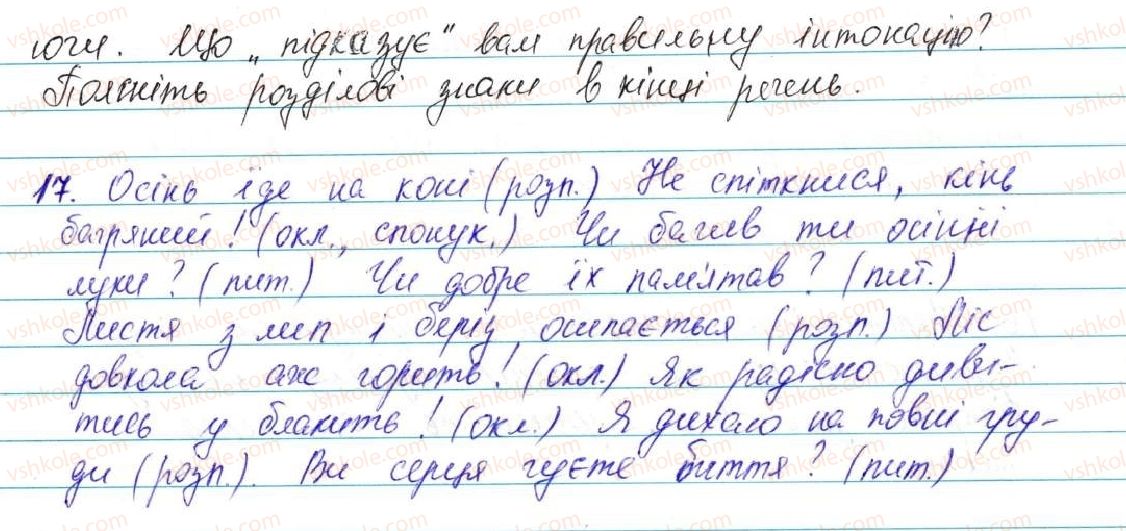 юги. Що „підказує" вам правильну інтонацію?
Поясніть розділові знаки в кінці речень.
17. Осінь їде на коні (розп.) Не спіткнися, кінь
багряний! (окл., спонук.) Чи бачив ти осінні
луки? (пит.) Чи добре їх пам'ятав? (пит.)
Листя з лип і беріз осипається (розп.) Ліс
довкола аж горить! (окл.) Як радісно диви-
тись у блакить! (окл.) Я дихаю на повні гру-
ди (розп.). Ви серця чуєте биття? (пит.)